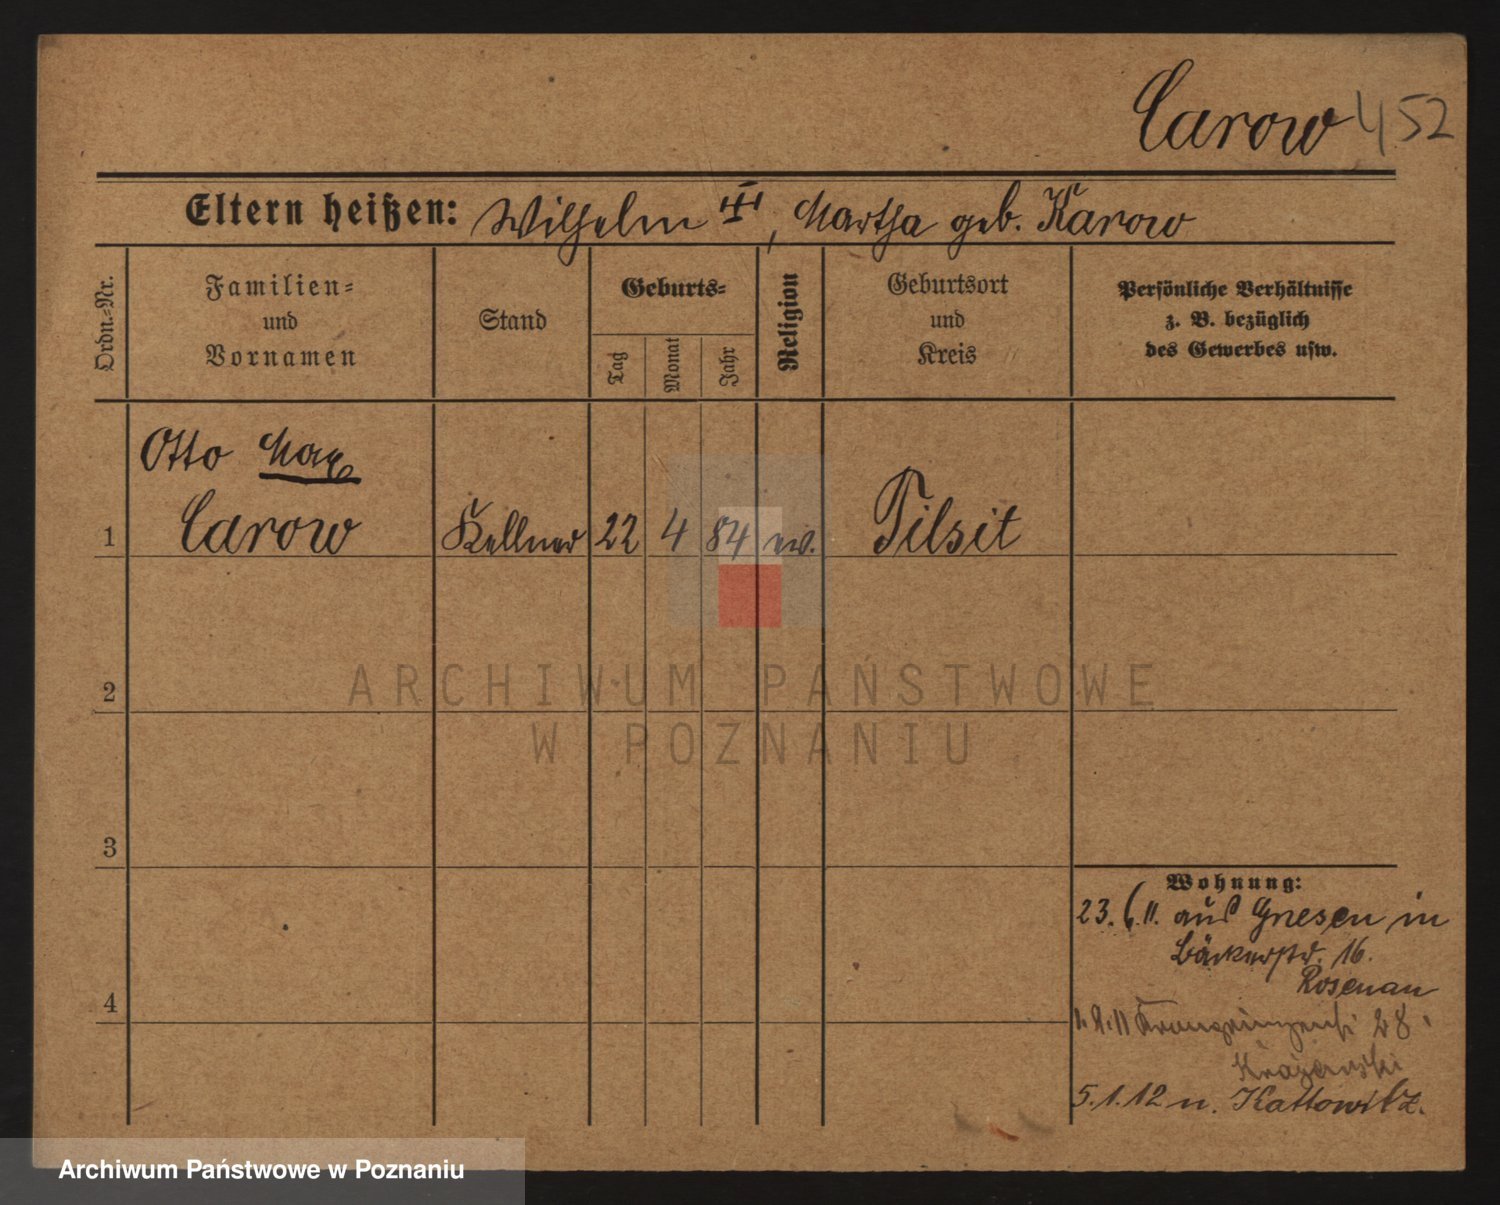 Carow 452
Eltern heißen: Wilhelm, Martha geb. Karow
Ordn.-Nr.
Familien-
und
Vornamen
Stand
Geburts-
Tag
Monat
Jahr
Religion
Geburtsort
und
Kreis
Persönliche Verhältnisse
z. B. bezüglich
des Gewerbes usw.
Otto Max
1 Carow Kellner 22 4 84 ev. Tilsit
2
ARCHIWUM PAŃSTWOWE
W POZNANIU
3
Wohnung:
23. 6. 11. aus Gnesen in
Bäckerstr. 16.
Rosenau
4
Kronprinzenst 28
5. 1. 12 n. Kattowitz.
Archiwum Państwowe w Poznaniu